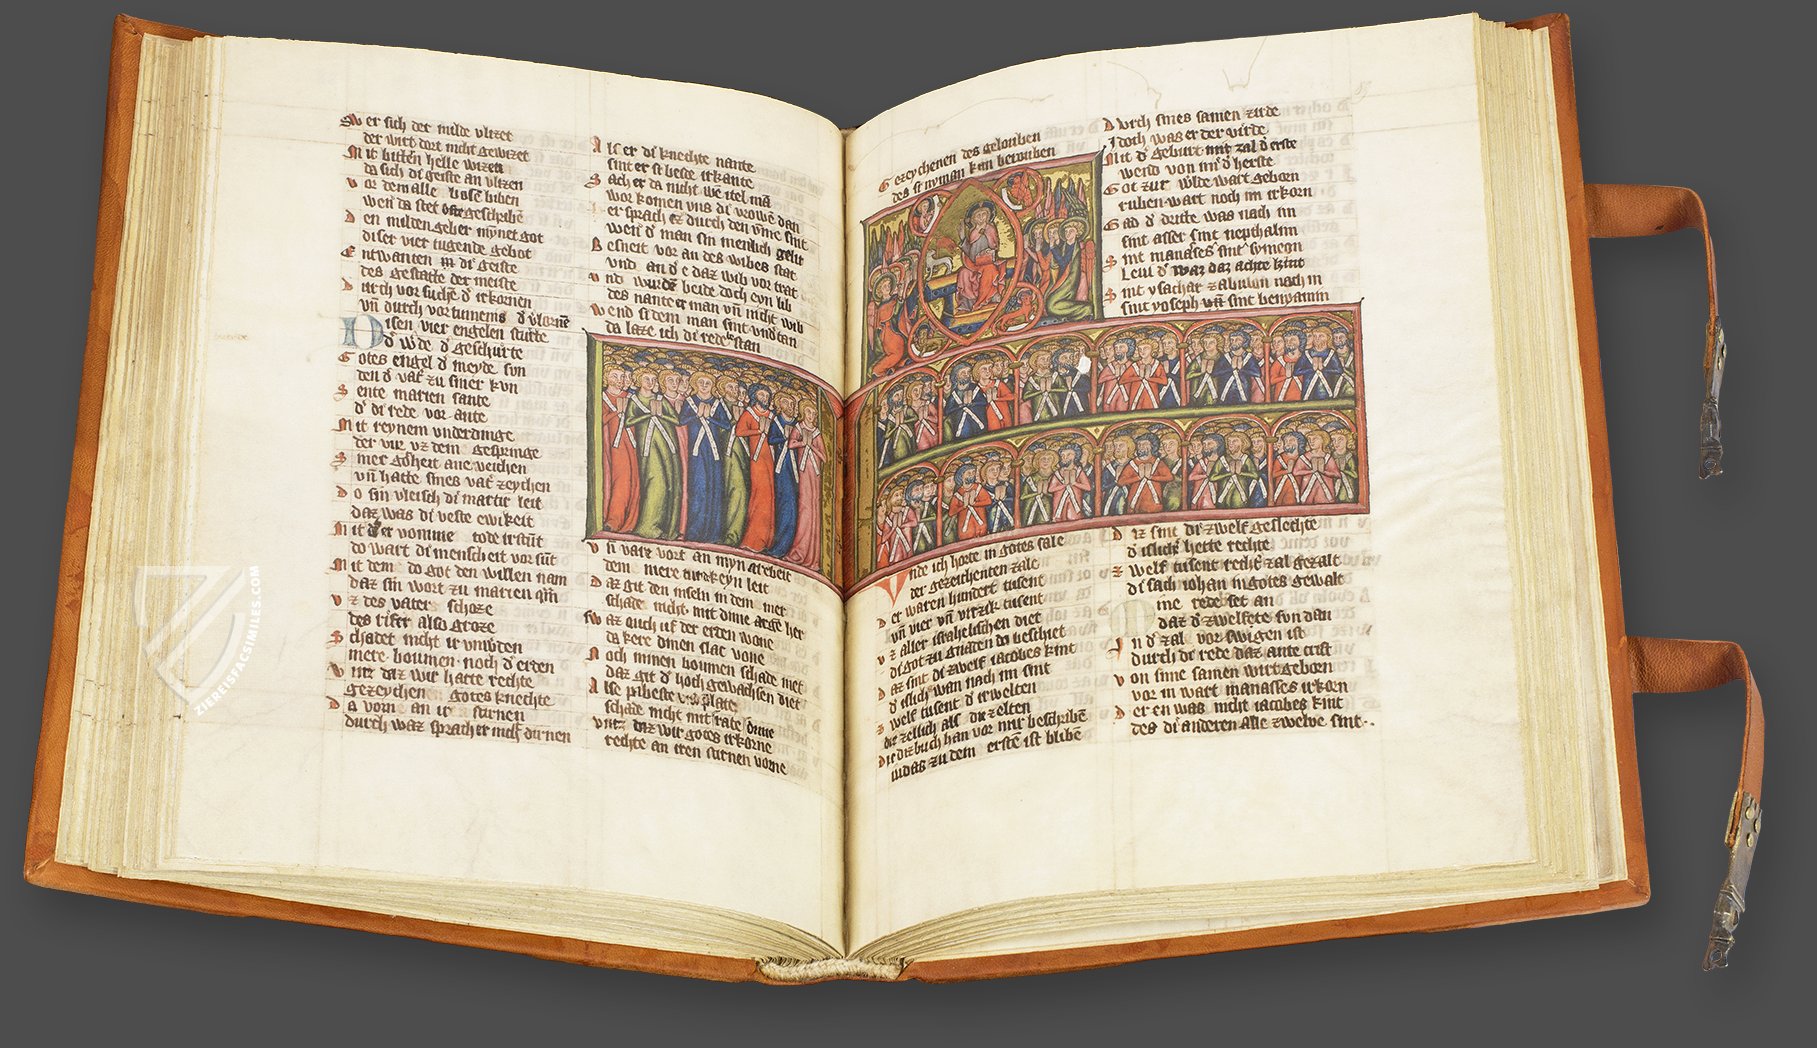 Sw er sich der milde vlizet
der wirt dort nicht gewizet
Mit bittn̄ helle wizen
da sich di geiste an vlizen
vor dem alle
wen da stet
den milden geber mynet got
diser vier tugende gebot
Entwanten in di geiste
des gestatte der meister
durch vor suchē d' irkornen
vn̄ durch vortumenis d' vlornē
Disen vier engelen sturte
d' w'de d' geschurte
Gotes engel d' meyde sun
den d' vat' zu siner kvn
Sente marien sante
d' di rede vor ante
Mit reynem vnderdinge
der vir vz dem gespringe
Siner gotheit ane veichen
vn̄ hatte sines vat' zeychen
Do sin vleisch di martir leit
daz was di veste ewikeit
Mit d' er vomme tode irstūt
do wart di menscheit vor sūt
Mit dem do got den willen nam
daz sin wort zu marien q̄m
vz des vater schoze
des rifer also groze
Schadet nicht ir vnw'den
mere boumen noch d' erden
vntz daz wir hatte rechte
gezeychen gotes knechte
Da vorn an ir stirnen
durch waz sprach er nich dirnen
Als er di knechte nante
sint er si beide irkante
Sach er da nicht we itel mā
wor komen vns di vrowē dan
er sprach ez durch den
wen d' man sin menlich
Besneit vor an des wibes stat
vnd an d' e daz wib vor trat
vnd wurdē beide doch eyn lib
des nante er man vn̄ nicht wib
wend si dem man sint vnd'tan
da laze ich di rede bestan
vn̄ vare vort an myn arebeit
dem mere tut keyn leit
Daz git den inseln in dem mer
schade nicht mit dime argē her
Sw az ouch uf der erden wone
da kere dinen slac vone
Noch minen boumen schade met
daz git d' hoch gewachsen diet
Alse
schade nicht mit rate dinne
vntz daz wir gotes irkorne
rechte an iren stirnen vorne
Gezeychenen des gelouben
des si nyman kan berouben
Vnde ich horte in gotes sale
der gezeichenten zale
der waren hundert tusent
vn̄ vier vn̄ virzik tusent
vz aller israhelischen diet
di got zu gnaden do beschiet
daz sint di zwelf iacobes kint
d' islich wan nach im sint
zwelf tusent d' irwelten
die zellich als die zelten
die diz buch han vor mir beschribē
iudas zu dem erstē ist blibē
Durch sines samen zirde
Idoch was er der virde
Mit d' geburt mit zal d' erste
wend von im d' herste
Got zur w'lde wart geborn
ruben wart noch im irkorn
Gad d' dritte was nach im
sint asser sint nepthalim
Sint manasses sint symeon
Leui d' waz daz achte kint
Sint ysachar zabulon nach in
sint yoseph vn̄ sint benyamin
Diz sint di zwelf geslechte
d' islich hette rechte
zwelf tusent rechtē zal gezalt
di sach iohan in gotes gewalt
me rede set an
daz d' zwelfere sun dan
In d' zal vor swigen ist
durch di rede daz ante crist
von sime samen wirt geborn
vor in wart manasses irkorn
der en was nicht iacobes kint
des di anderen alle zwelve sint..
ZIEREISFACSIMILES.COM